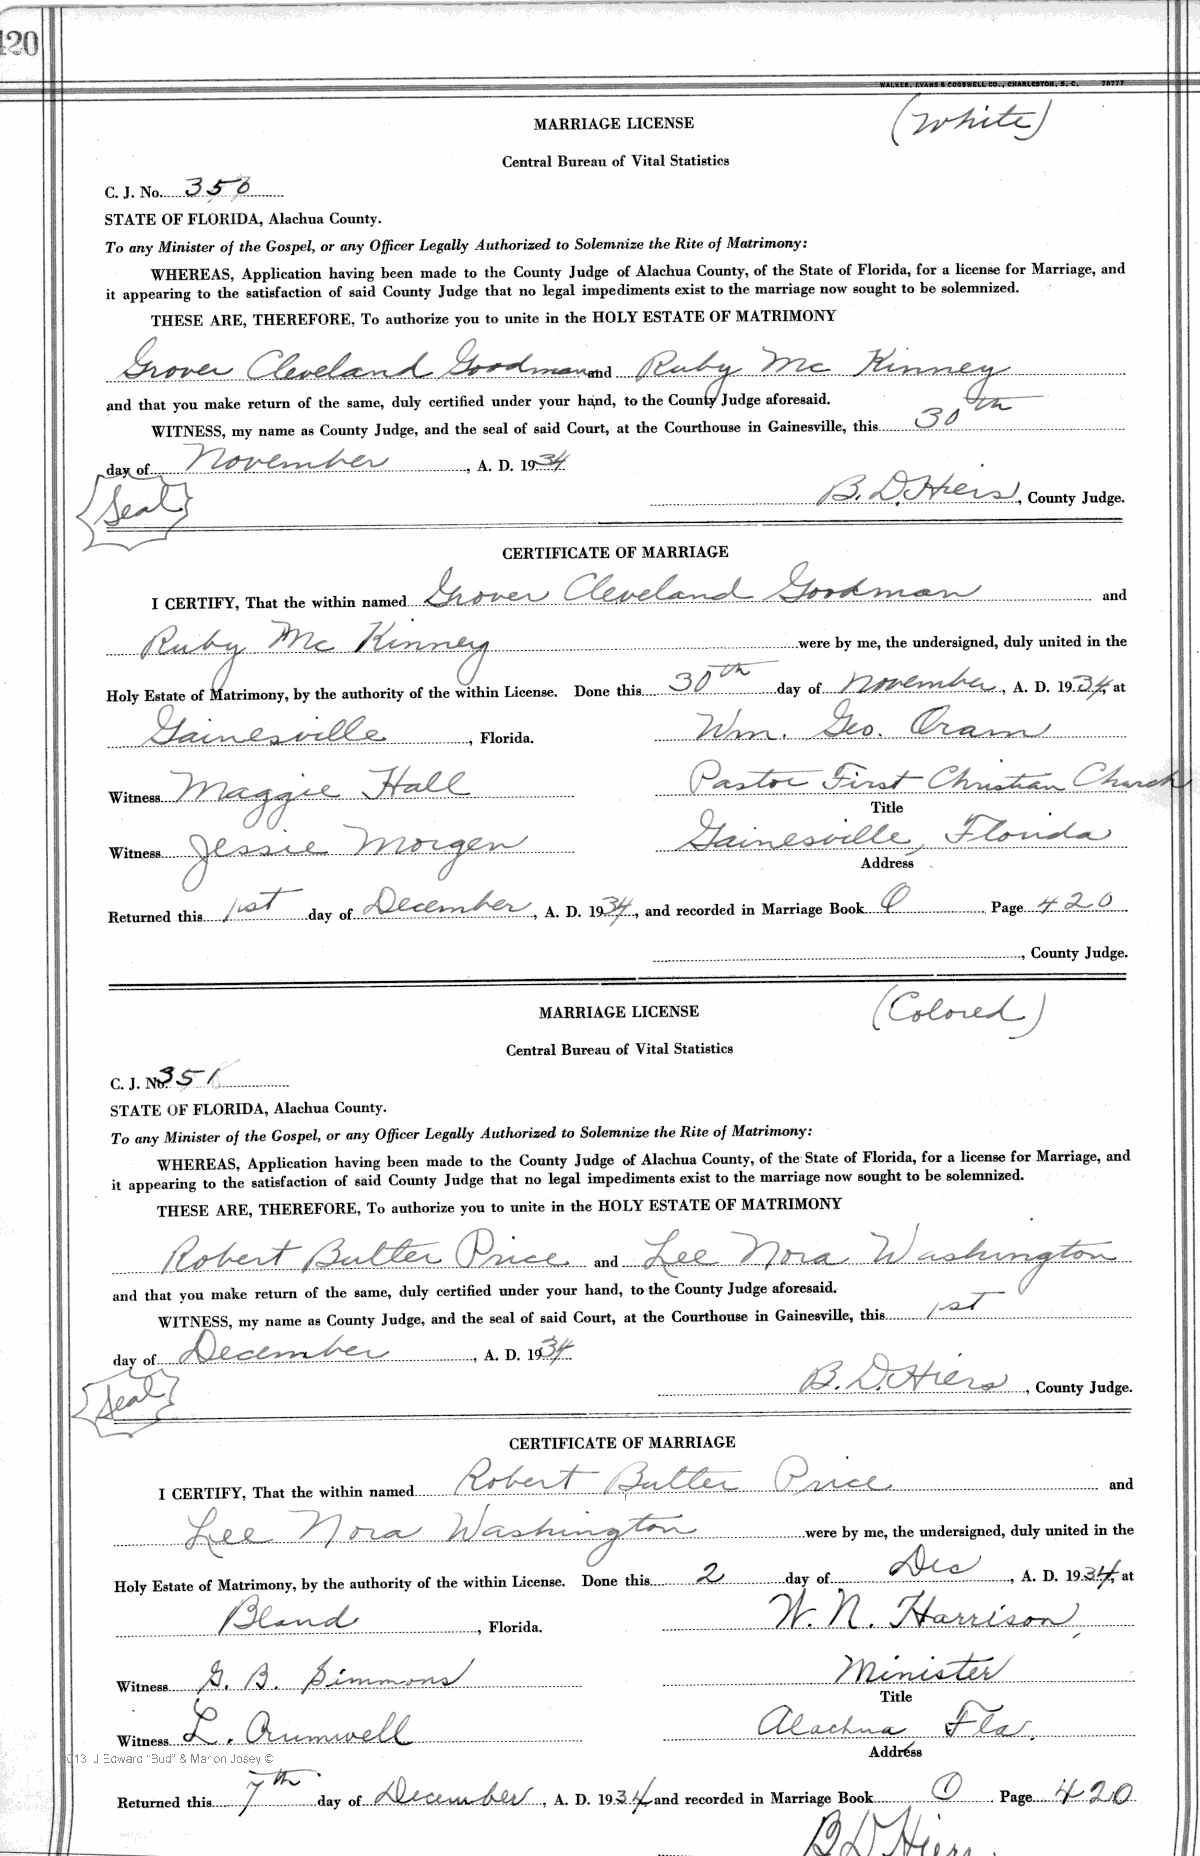 420
WALKER, EVANS & COGSWELL CO., CHARLESTON, S. C. 78777
(White)
MARRIAGE LICENSE
Central Bureau of Vital Statistics
C. J. No. 350
STATE OF FLORIDA, Alachua County.
To any Minister of the Gospel, or any Officer Legally Authorized to Solemnize the Rite of Matrimony:
WHEREAS, Application having been made to the County Judge of Alachua County, of the State of Florida, for a license for Marriage, and
it appearing to the satisfaction of said County Judge that no legal impediments exist to the marriage now sought to be solemnized.
THESE ARE, THEREFORE, To authorize you to unite in the HOLY ESTATE OF MATRIMONY
Grover Cleveland Goodman and Ruby Mc Kinney
and that you make return of the same, duly certified under your hand, to the County Judge aforesaid.
WITNESS, my name as County Judge, and the seal of said Court, at the Courthouse in Gainesville, this 30th
day of November, A. D. 1934
Seal
B. D. Hiers, County Judge.
CERTIFICATE OF MARRIAGE
I CERTIFY, That the within named Grover Cleveland Goodman and
Ruby Mc Kinney were by me, the undersigned, duly united in the
Holy Estate of Matrimony, by the authority of the within License. Done this 30th day of November, A. D. 1934, at
Gainesville, Florida. Wm. Geo. Oram
Witness Maggie Hall Pastor First Christian Church
Title
Witness Jessie Morgen Gainesville, Florida
Address
Returned this 1st day of December, A. D. 1934, and recorded in Marriage Book O Page 420
, County Judge.
(Colored)
MARRIAGE LICENSE
Central Bureau of Vital Statistics
C. J. No. 351
STATE OF FLORIDA, Alachua County.
To any Minister of the Gospel, or any Officer Legally Authorized to Solemnize the Rite of Matrimony:
WHEREAS, Application having been made to the County Judge of Alachua County, of the State of Florida, for a license for Marriage, and
it appearing to the satisfaction of said County Judge that no legal impediments exist to the marriage now sought to be solemnized.
THESE ARE, THEREFORE, To authorize you to unite in the HOLY ESTATE OF MATRIMONY
Robert Butler Price and Lee Nora Washington
and that you make return of the same, duly certified under your hand, to the County Judge aforesaid.
WITNESS, my name as County Judge, and the seal of said Court, at the Courthouse in Gainesville, this 1st
day of December, A. D. 1934
Seal
B. D. Hiers, County Judge.
CERTIFICATE OF MARRIAGE
I CERTIFY, That the within named Robert Butler Price and
Lee Nora Washington were by me, the undersigned, duly united in the
Holy Estate of Matrimony, by the authority of the within License. Done this 2 day of Dec, A. D. 1934, at
Bland, Florida. W. N. Harrison,
Witness G. B. Simmons Minister
Title
Witness L. Crumwell Alachua Fla.
Address
013 J Edward "Bud" & Marion Josey ©
Returned this 7th day of December, A. D. 1934 and recorded in Marriage Book O Page 420
B D Hiers